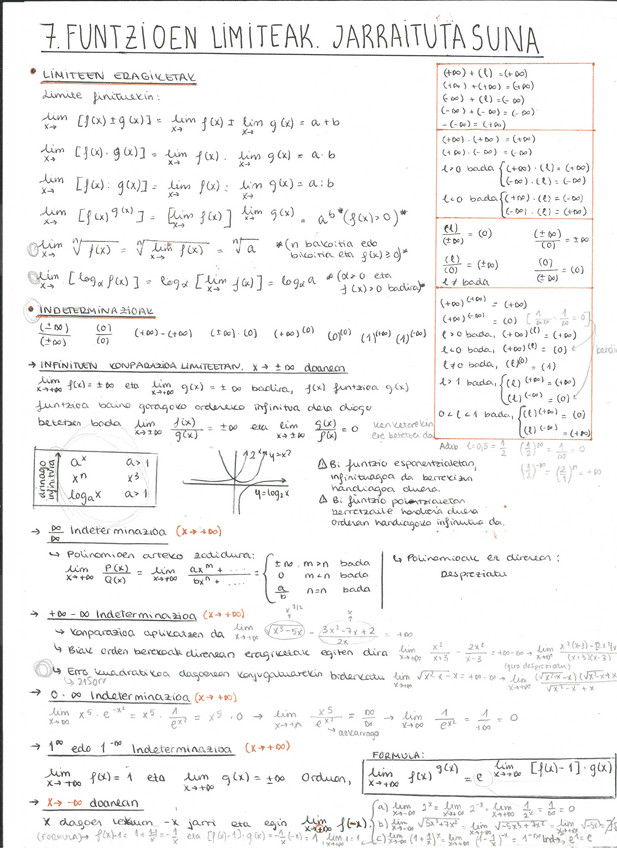 7. FUNTZIOEN LIMITEAK. JARRAITUTASUNA
• LIMITEEN ERAGIKETAK
Limite finituekin:
lim x→ [f(x) ± g(x)] = lim x→ f(x) ± lim x→ g(x) = a + b
lim x→ [f(x) · g(x)] = lim x→ f(x) · lim x→ g(x) = a · b
lim x→ [f(x) : g(x)] = lim x→ f(x) : lim x→ g(x) = a : b
lim x→ [f(x)^g(x)] = [lim x→ f(x)] ^ lim x→ g(x) = a^b *(f(x)>0)*
lim x→ ⁿ√f(x) = ⁿ√lim x→ f(x) = ⁿ√a *(n bakoitia edo
bikoitia eta f(x) ≥ 0)*
lim x→ [logα f(x)] = logα [lim x→ f(x)] = logα a *(α>0 eta
f(x)>0 badira)*
(+∞) + (l) = (+∞)
(+∞) + (+∞) = (+∞)
(-∞) + (l) = (-∞)
(-∞) + (-∞) = (-∞)
-(-∞) = (+∞)
(+∞) · (+∞) = (+∞)
(+∞) · (-∞) = (-∞)
l>0 bada { (+∞) · (l) = (+∞)
(-∞) · (l) = (-∞)
l<0 bada { (+∞) · (l) = (-∞)
(-∞) · (l) = (+∞)
(l)/(±∞) = (0) (±∞)/(0) = ±∞
(l)/(0) = (±∞) (0)/(±∞) = (0)
l ≠ bada
(+∞)^(+∞) = (+∞)
(+∞)^(-∞) = (0)
l>0 bada, (+∞)^(l) = (+∞)
l<0 bada, (+∞)^(l) = (0)
l≠0 bada, (l)^(0) = (1)
l>1 bada, { (l)^(+∞) = (+∞)
(l)^(-∞) = (0)
0<l<1 bada, { (l)^(+∞) = (0)
(l)^(-∞) = (+∞)
Adib. l=0,5 = 1/2 (1/2)^∞ = 1/∞ = 0
• INDETERMINAZIOAK
(±∞)/(±∞) (0)/(0) (+∞)-(+∞) (±∞)·(0) (+∞)^(0) (0)^(0) (1)^(+∞) (1)^(-∞)
→ INFINITUEN KONPARAZIOA LIMITEETAN. x → ±∞ doanean
lim x→ f(x) = ±∞ eta lim x→ g(x) = ±∞ badira, f(x) funtzioa g(x)
funtzioa baino goragoko ordeneko infinitua dela diogu
betetzen bada lim x→±∞ f(x)/g(x) = ±∞ eta lim x→±∞ g(x)/f(x) = 0
infinitua
a^x a>1
x^n x^3
logα x a>1
2^x y=x²
y=log₂x
△ Bi funtzio esponentzialetan,
infinituagoa da berrekizun
handiagoa duena.
△ Bi funtzio potentzialetan
berretzaile handiena duena
ordenan handiagoko infinitua da.
→ ∞/∞ Indeterminazioa (x→+∞)
↳ Polinomioen arteko zatidura:
lim x→+∞ P(x)/Q(x) = lim x→+∞ ax^m + .... / bx^n + .... = { ±∞ m>n bada
0 m<n bada
a/b m=n bada
↳ Polinomioak ez direnean:
Despreziatu
→ +∞-∞ Indeterminazioa (x→+∞)
↳ Konparazioa aplikatzen da lim x→+∞ √(x³-5x) - (3x²-7x+2)/2x = +∞
↳ Biak orden berekoak direnean eragiketak egiten dira lim x→+∞ x²/(x+3) - 2x²/(x-3) = +∞-∞ →
↳ Erro kuadratikoa dagoenean konjugatuarekin biderkatu lim x→+∞ √(x²-x) - x = +∞-∞ →
→ 0·∞ Indeterminazioa (x→+∞)
lim x→+∞ x⁵ · e^(-x²) = x⁵ · 1/e^(x²) = x⁵ · 0 → lim x→+∞ x⁵/e^(x²) = ∞/∞ → lim x→+∞ 1/e^(x²) = 1/+∞ = 0
azkarrago
→ 1^∞ edo 1^-∞ Indeterminazioa (x→+∞)
lim x→+∞ f(x) = 1 eta lim x→+∞ g(x) = ±∞ Orduan,
FORMULA:
lim x→+∞ f(x)^g(x) = e^ lim x→+∞ [f(x)-1]·g(x)
→ x→-∞ doanean
x dagoen lekuan -x jarri eta egin lim x→+∞ f(-x)
a) lim x→-∞ 2^x = lim x→+∞ 2^-x = lim x→+∞ 1/2^x = 1/∞ = 0